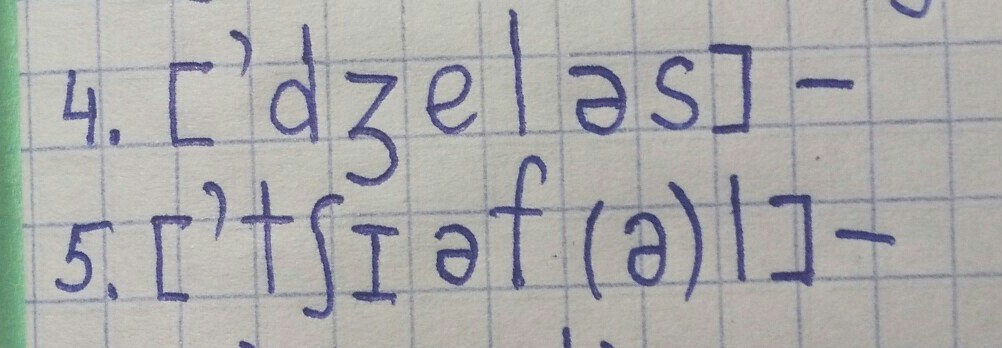 4. ['dʒeləs] –
5. ['tʃɪəf(ə)l] –